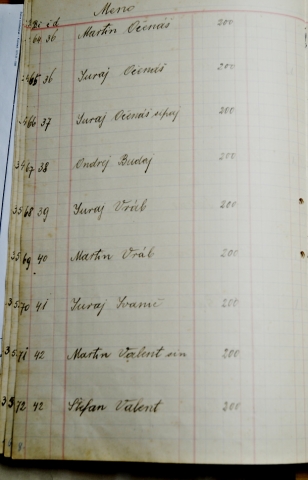 Meno
64 36 Martin Očenáš 200
65 36 Juraj Očenáš 200
66 37 Juraj Očenáš 200
3567 38 Ondrej Budaj 200
3568 39 Juraj Vráb 200
3569 40 Martin Vráb 200
3570 41 Juraj Ivanič 200
3571 42 Martin Valent sin 200
3572 42 Štefan Valent 200